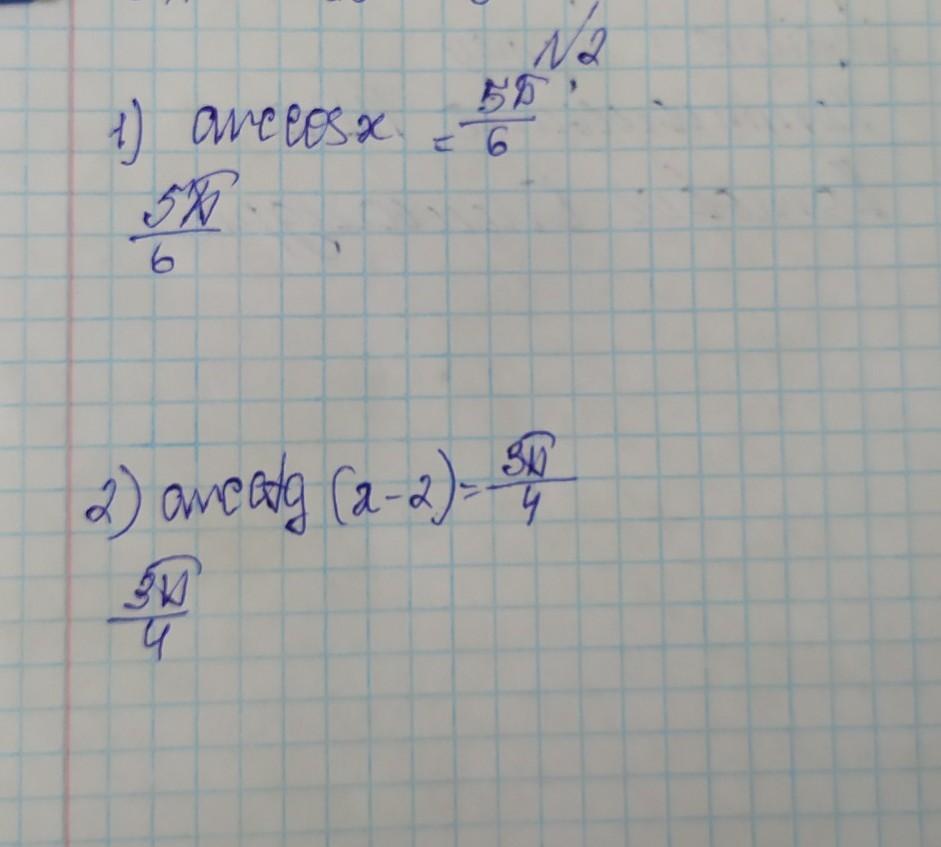 №2
1) arccos x = 5π/6
5π/6
2) arcctg (x-2) = 3π/4
3π/4